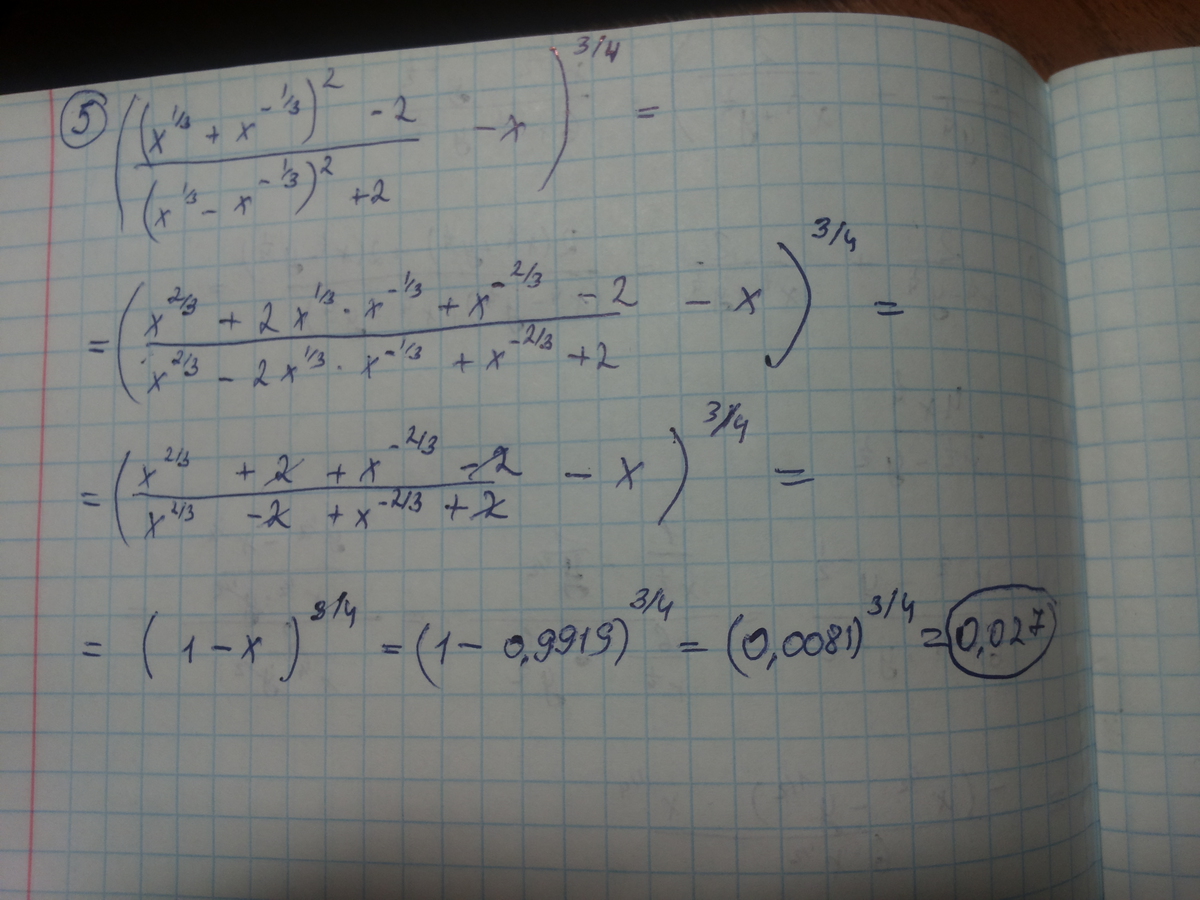 ⑤ (((x^1/3 + x^-1/3)^2 - 2) / ((x^1/3 - x^-1/3)^2 + 2) - x)^3/4 =
= ((x^2/3 + 2x^1/3 · x^-1/3 + x^-2/3 - 2) / (x^2/3 - 2x^1/3 · x^-1/3 + x^-2/3 + 2) - x)^3/4 =
= ((x^2/3 + 2 + x^-2/3 - 2) / (x^2/3 - 2 + x^-2/3 + 2) - x)^3/4 =
= (1 - x)^3/4 = (1 - 0,9919)^3/4 = (0,0081)^3/4 = 0,027